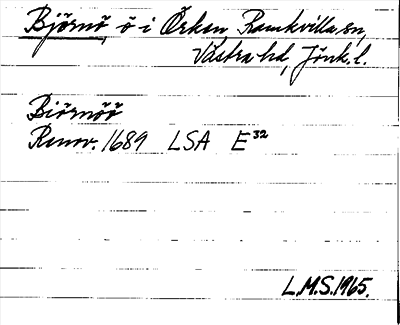 Björnö, ö i Örken Ramkvilla sn,
Västra hd, Jönk. l.
Biörnöö
Renov. 1689 LSA E³²
L.M.S. 1965.